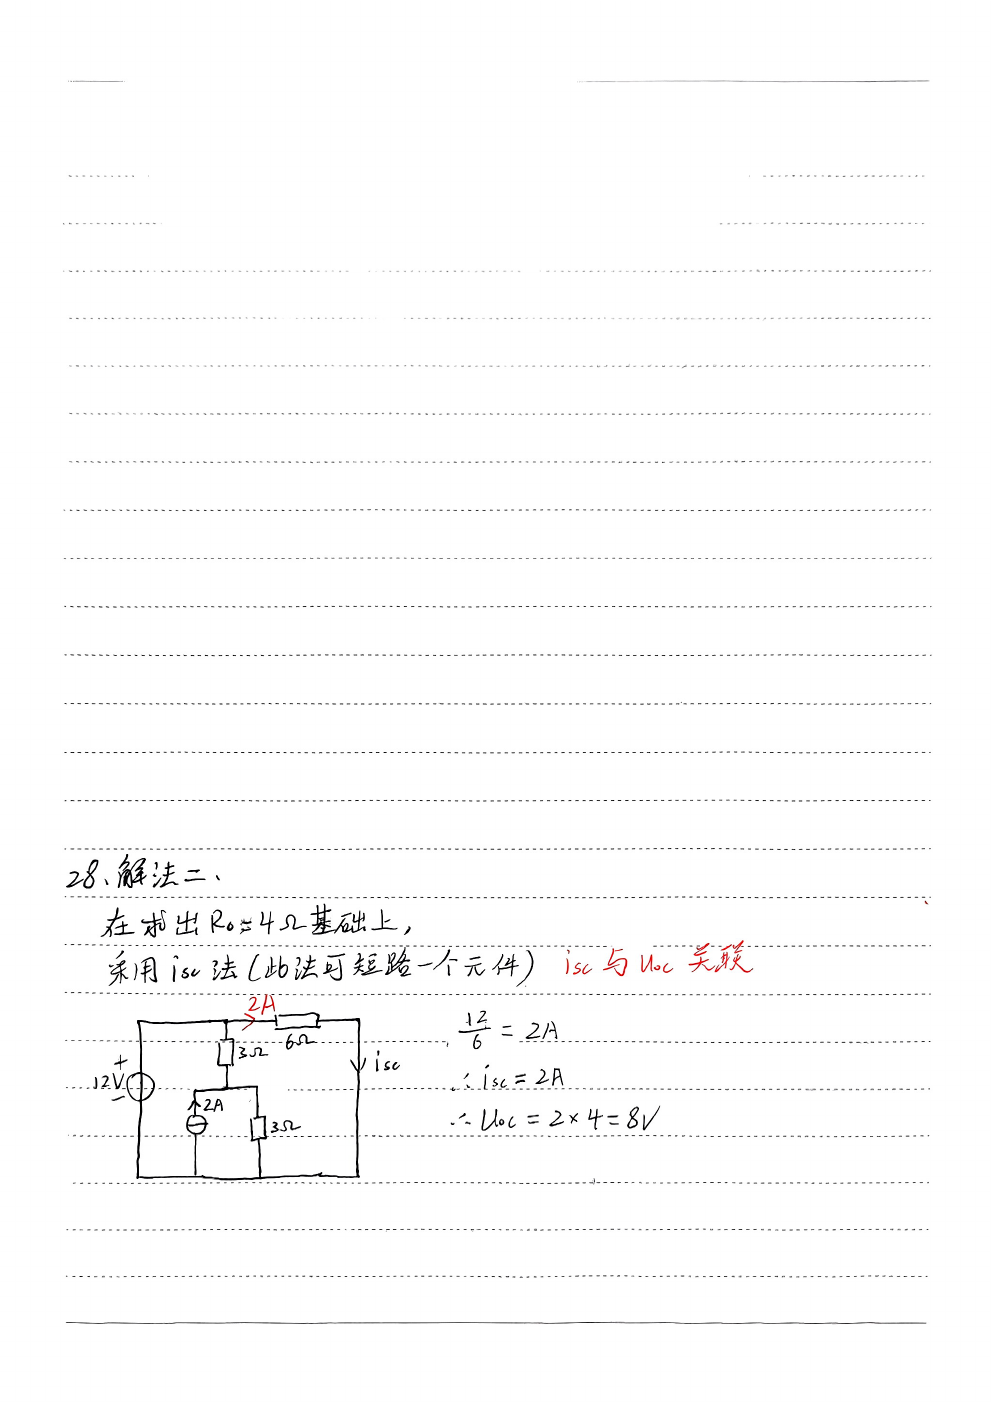 28、解法二、
在求出R₀=4Ω基础上,
采用isc法(此法可短路一个元件) isc与Uoc关联
2A
6Ω
3Ω
isc
+
12V
-
2A
3Ω
12/6 = 2A
∴ isc = 2A
∴ Uoc = 2×4=8V